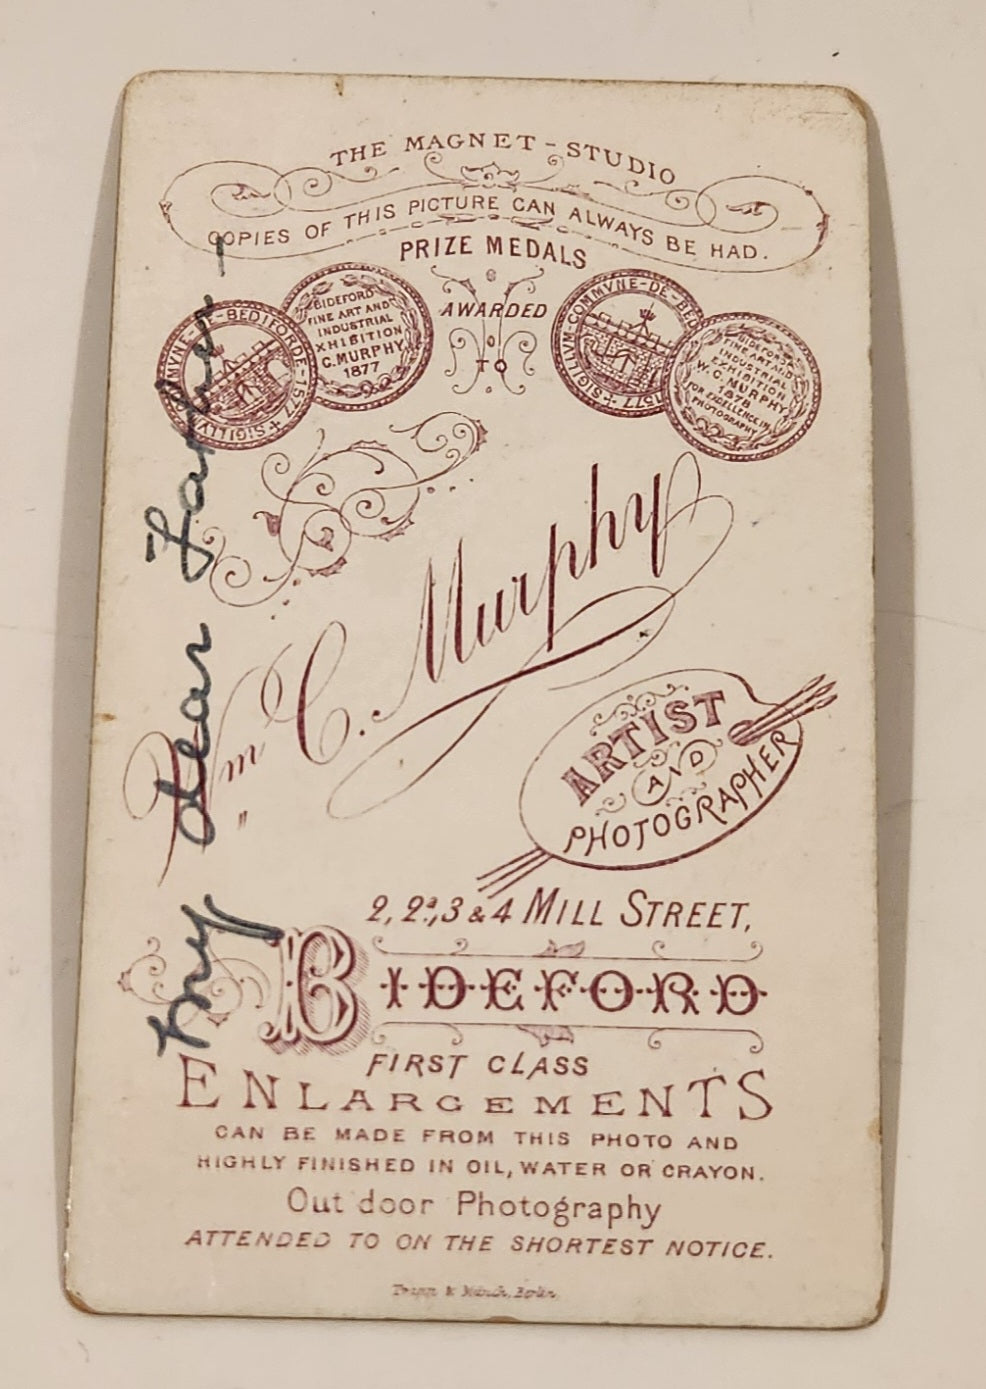 THE MAGNET-STUDIO
COPIES OF THIS PICTURE CAN ALWAYS BE HAD.
PRIZE MEDALS
AWARDED
TO
COMMVNE-DE-BEDIFORDE-1577 + SIGILLVM
BIDEFORD
FINE ART AND
INDUSTRIAL
XHIBITION
C. MURPHY
1877
SIGILLVM-COMMVNE-DE-BED 1577 +
BIDEFORD
FINE ART AND
INDUSTRIAL
EXHIBITION
W. C. MURPHY
1878
FOR EXCELLENCE IN
PHOTOGRAPHY
Wm C. Murphy
ARTIST
AND
PHOTOGRAPHER
2, 2a, 3 & 4 MILL STREET,
BIDEFORD
FIRST CLASS
ENLARGEMENTS
CAN BE MADE FROM THIS PHOTO AND
HIGHLY FINISHED IN OIL, WATER OR CRAYON.
Out door Photography
ATTENDED TO ON THE SHORTEST NOTICE.
Berlin
My dear Father -